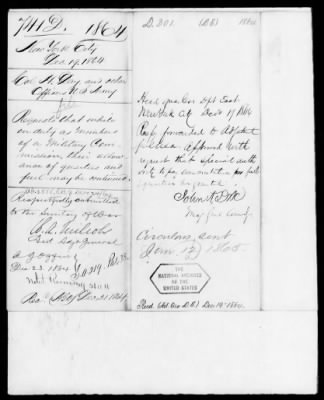 741 D. 1864
New York City
Dec. 19, 1864
Col. H. Day and other
Officers U.S. Army
Requests that while
on duty as members
of a Military Com-
mission, their allow-
ance of quarters and
fuel may be continued.
Respectfully submitted
to the Secretary of War
Asst. Adjt. General
A. G. Office
Dec 23. 1864
Rec'd Dec 21 1864
D. 801. (D.E.) 1864
Head quarters Dept East
New York City Dec 19 1864
Resp. forwarded to Adjutant
General approved with
request that special auth
ority to pay commutation for fuel
quarters be granted
John A Dix
Maj Genl Comdg
Circulars sent
Jan. 12 1865
THE
NATIONAL ARCHIVES
OF THE
UNITED STATES
Recd (Hd. Qrs D.E.) Dec 19" 1864.